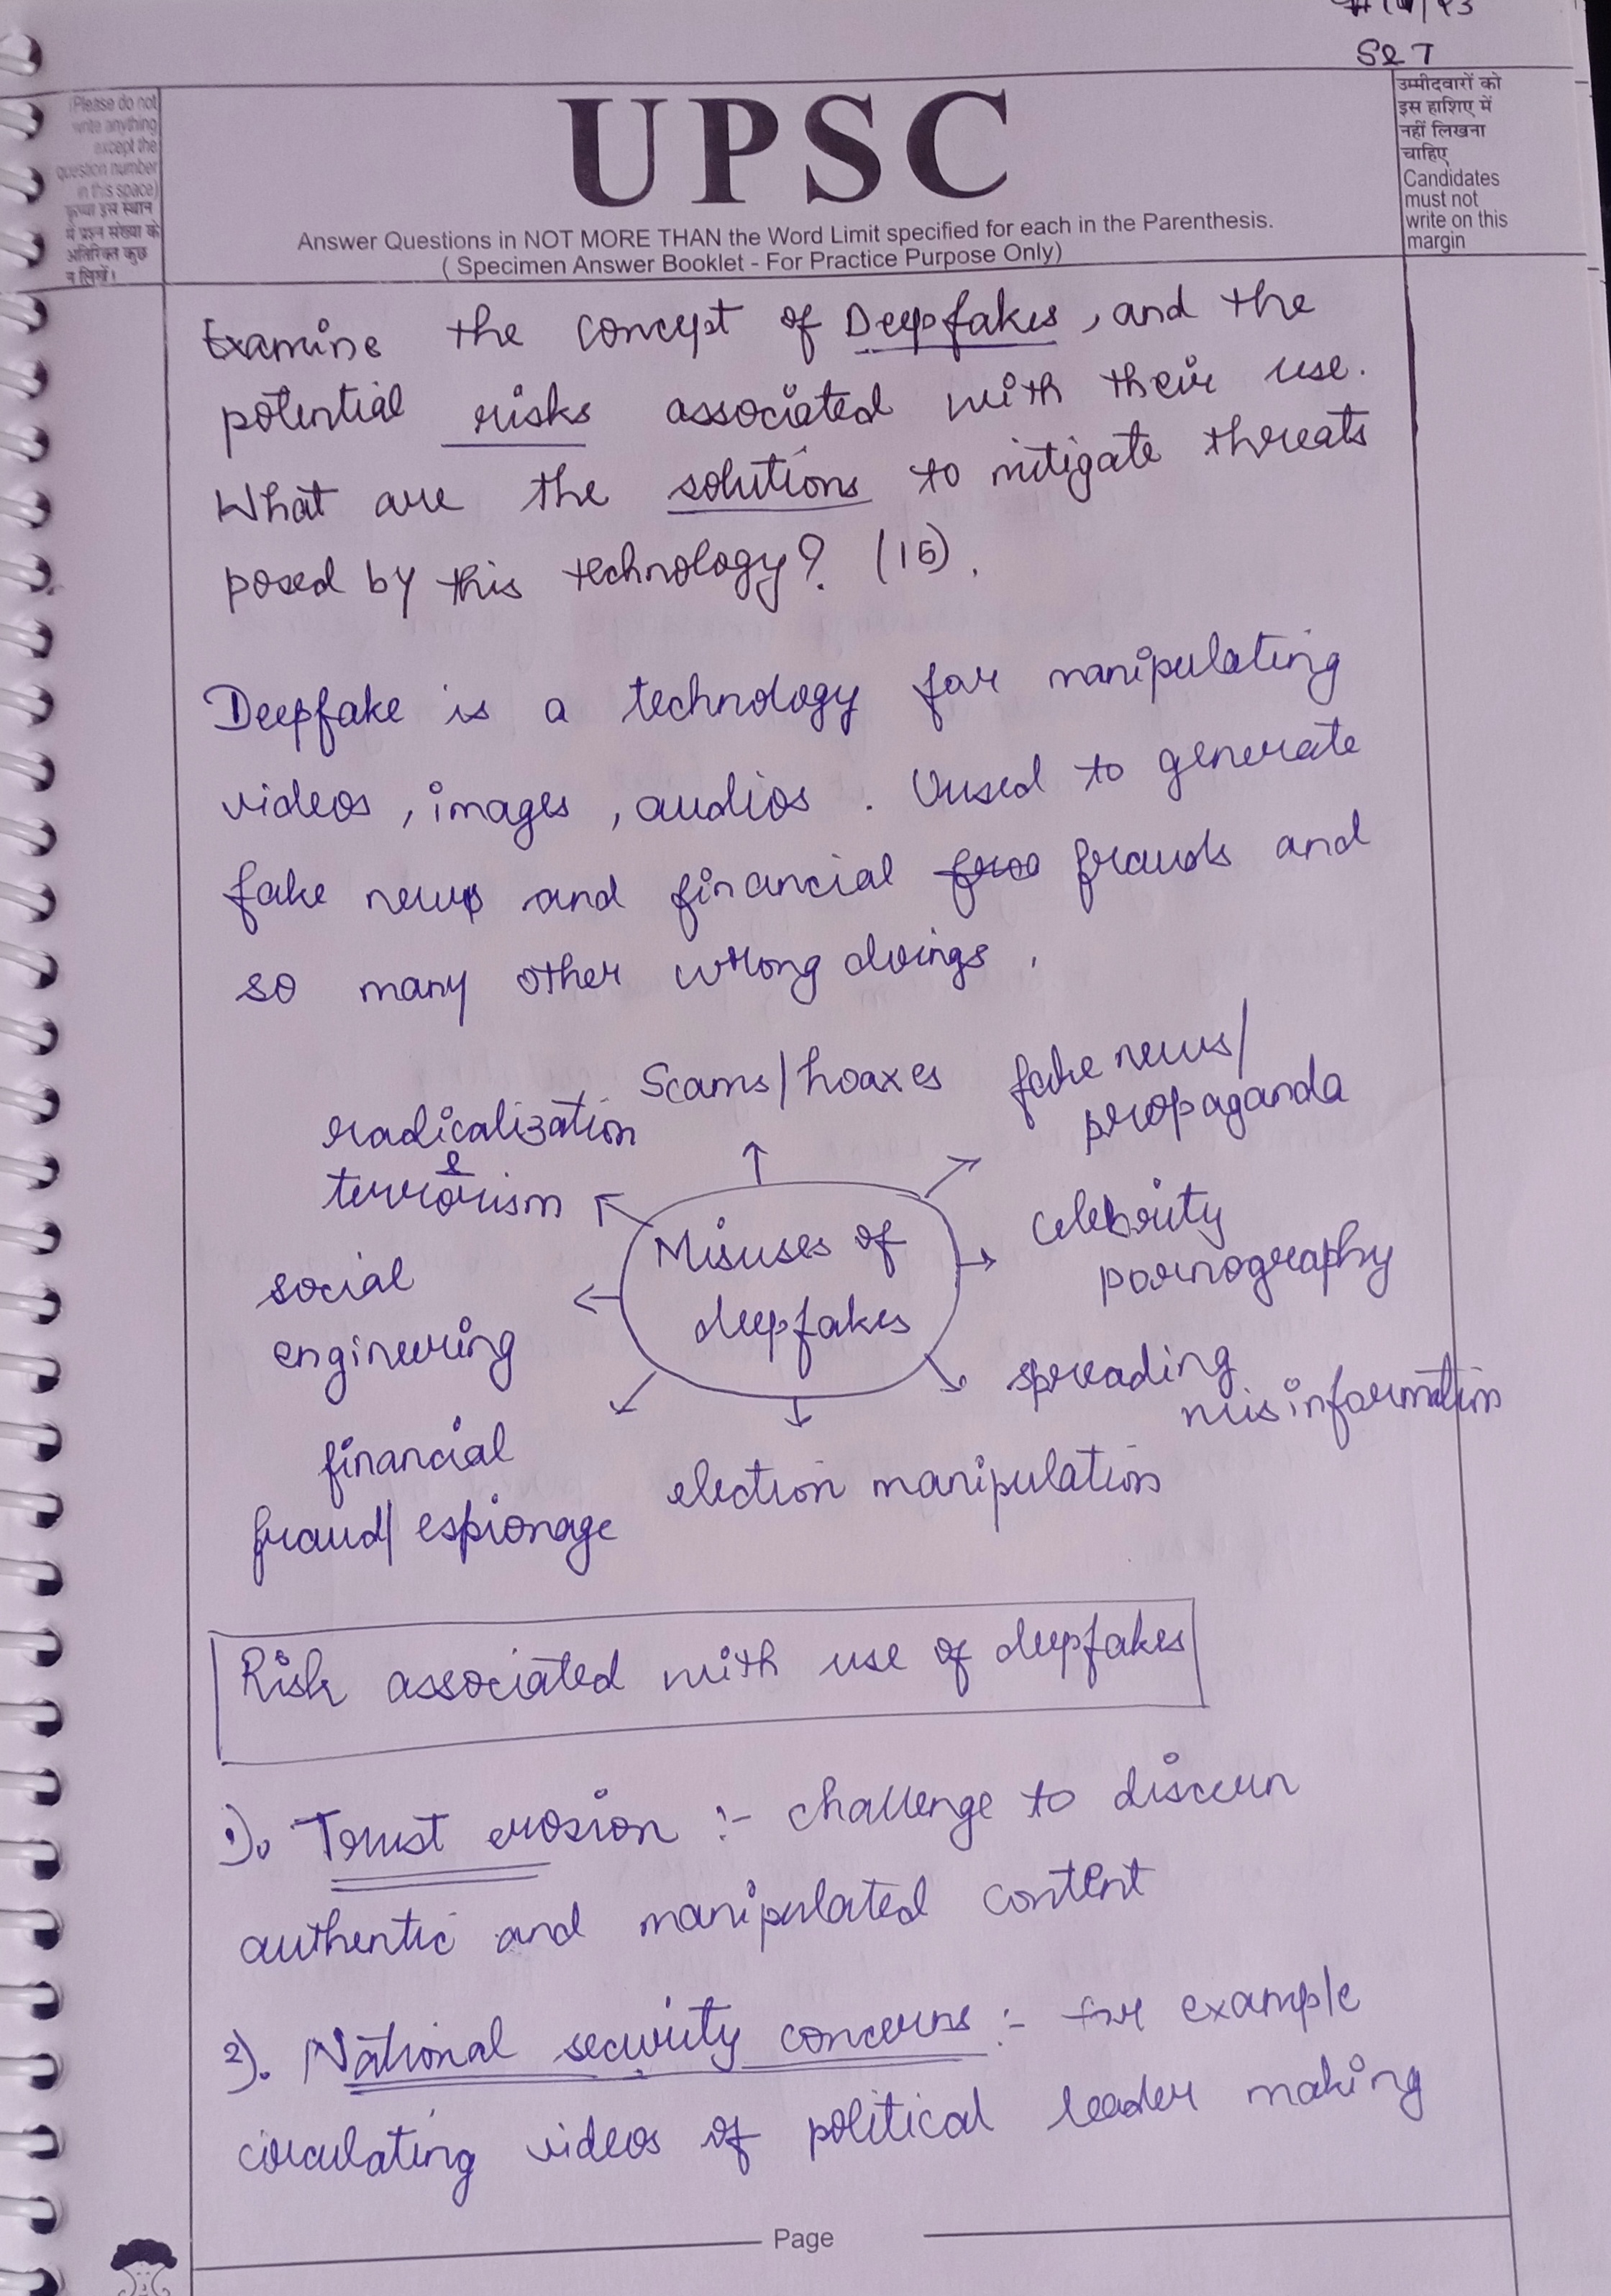 S2 7
(Please do not
write anything
except the
question number
in this space)
कृपया इस स्थान
में प्रश्न संख्या के
अतिरिक्त कुछ
न लिखें।
UPSC
Answer Questions in NOT MORE THAN the Word Limit specified for each in the Parenthesis.
( Specimen Answer Booklet - For Practice Purpose Only)
उम्मीदवारों को
इस हाशिए में
नहीं लिखना
चाहिए
Candidates
must not
write on this
margin
Examine the concept of Deepfakes, and the
potential risks associated with their use.
What are the solutions to mitigate threats
posed by this technology? (15).
Deepfake is a technology for manipulating
videos, images, audios. Uused to generate
fake news and financial frauds and
so many other wrong doings.
Misuses of
deepfakes
Scams/hoaxes
fake news/
propaganda
celebrity
pornography
spreading
misinformation
election manipulation
financial
fraud/espionage
social
engineering
radicalization
&
terrorism
Risk associated with use of deepfakes
1). Trust erosion :- challenge to discern
authentic and manipulated content
2). National security concerns :- for example
circulating videos of political leader making
Page